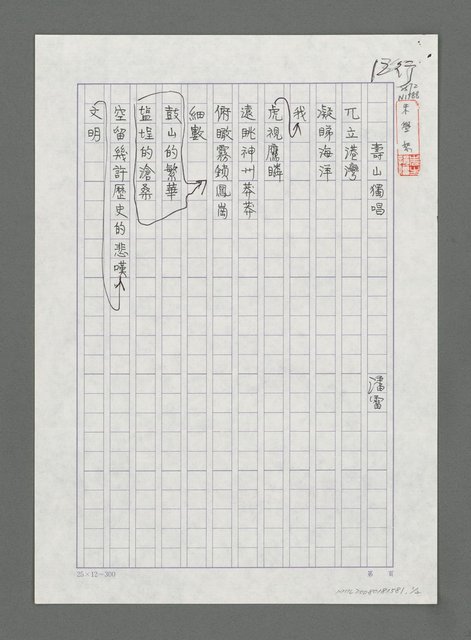 12行
壽山獨唱
潘雷
兀立港灣
凝睇海洋
我
虎視鷹瞵
遠眺神州莽莽
俯瞰霧鎖鳳崗
細數
鼓山的繁華
鹽埕的滄桑
空留幾許歷史的悲嘆
文明
25×12=300
第 頁